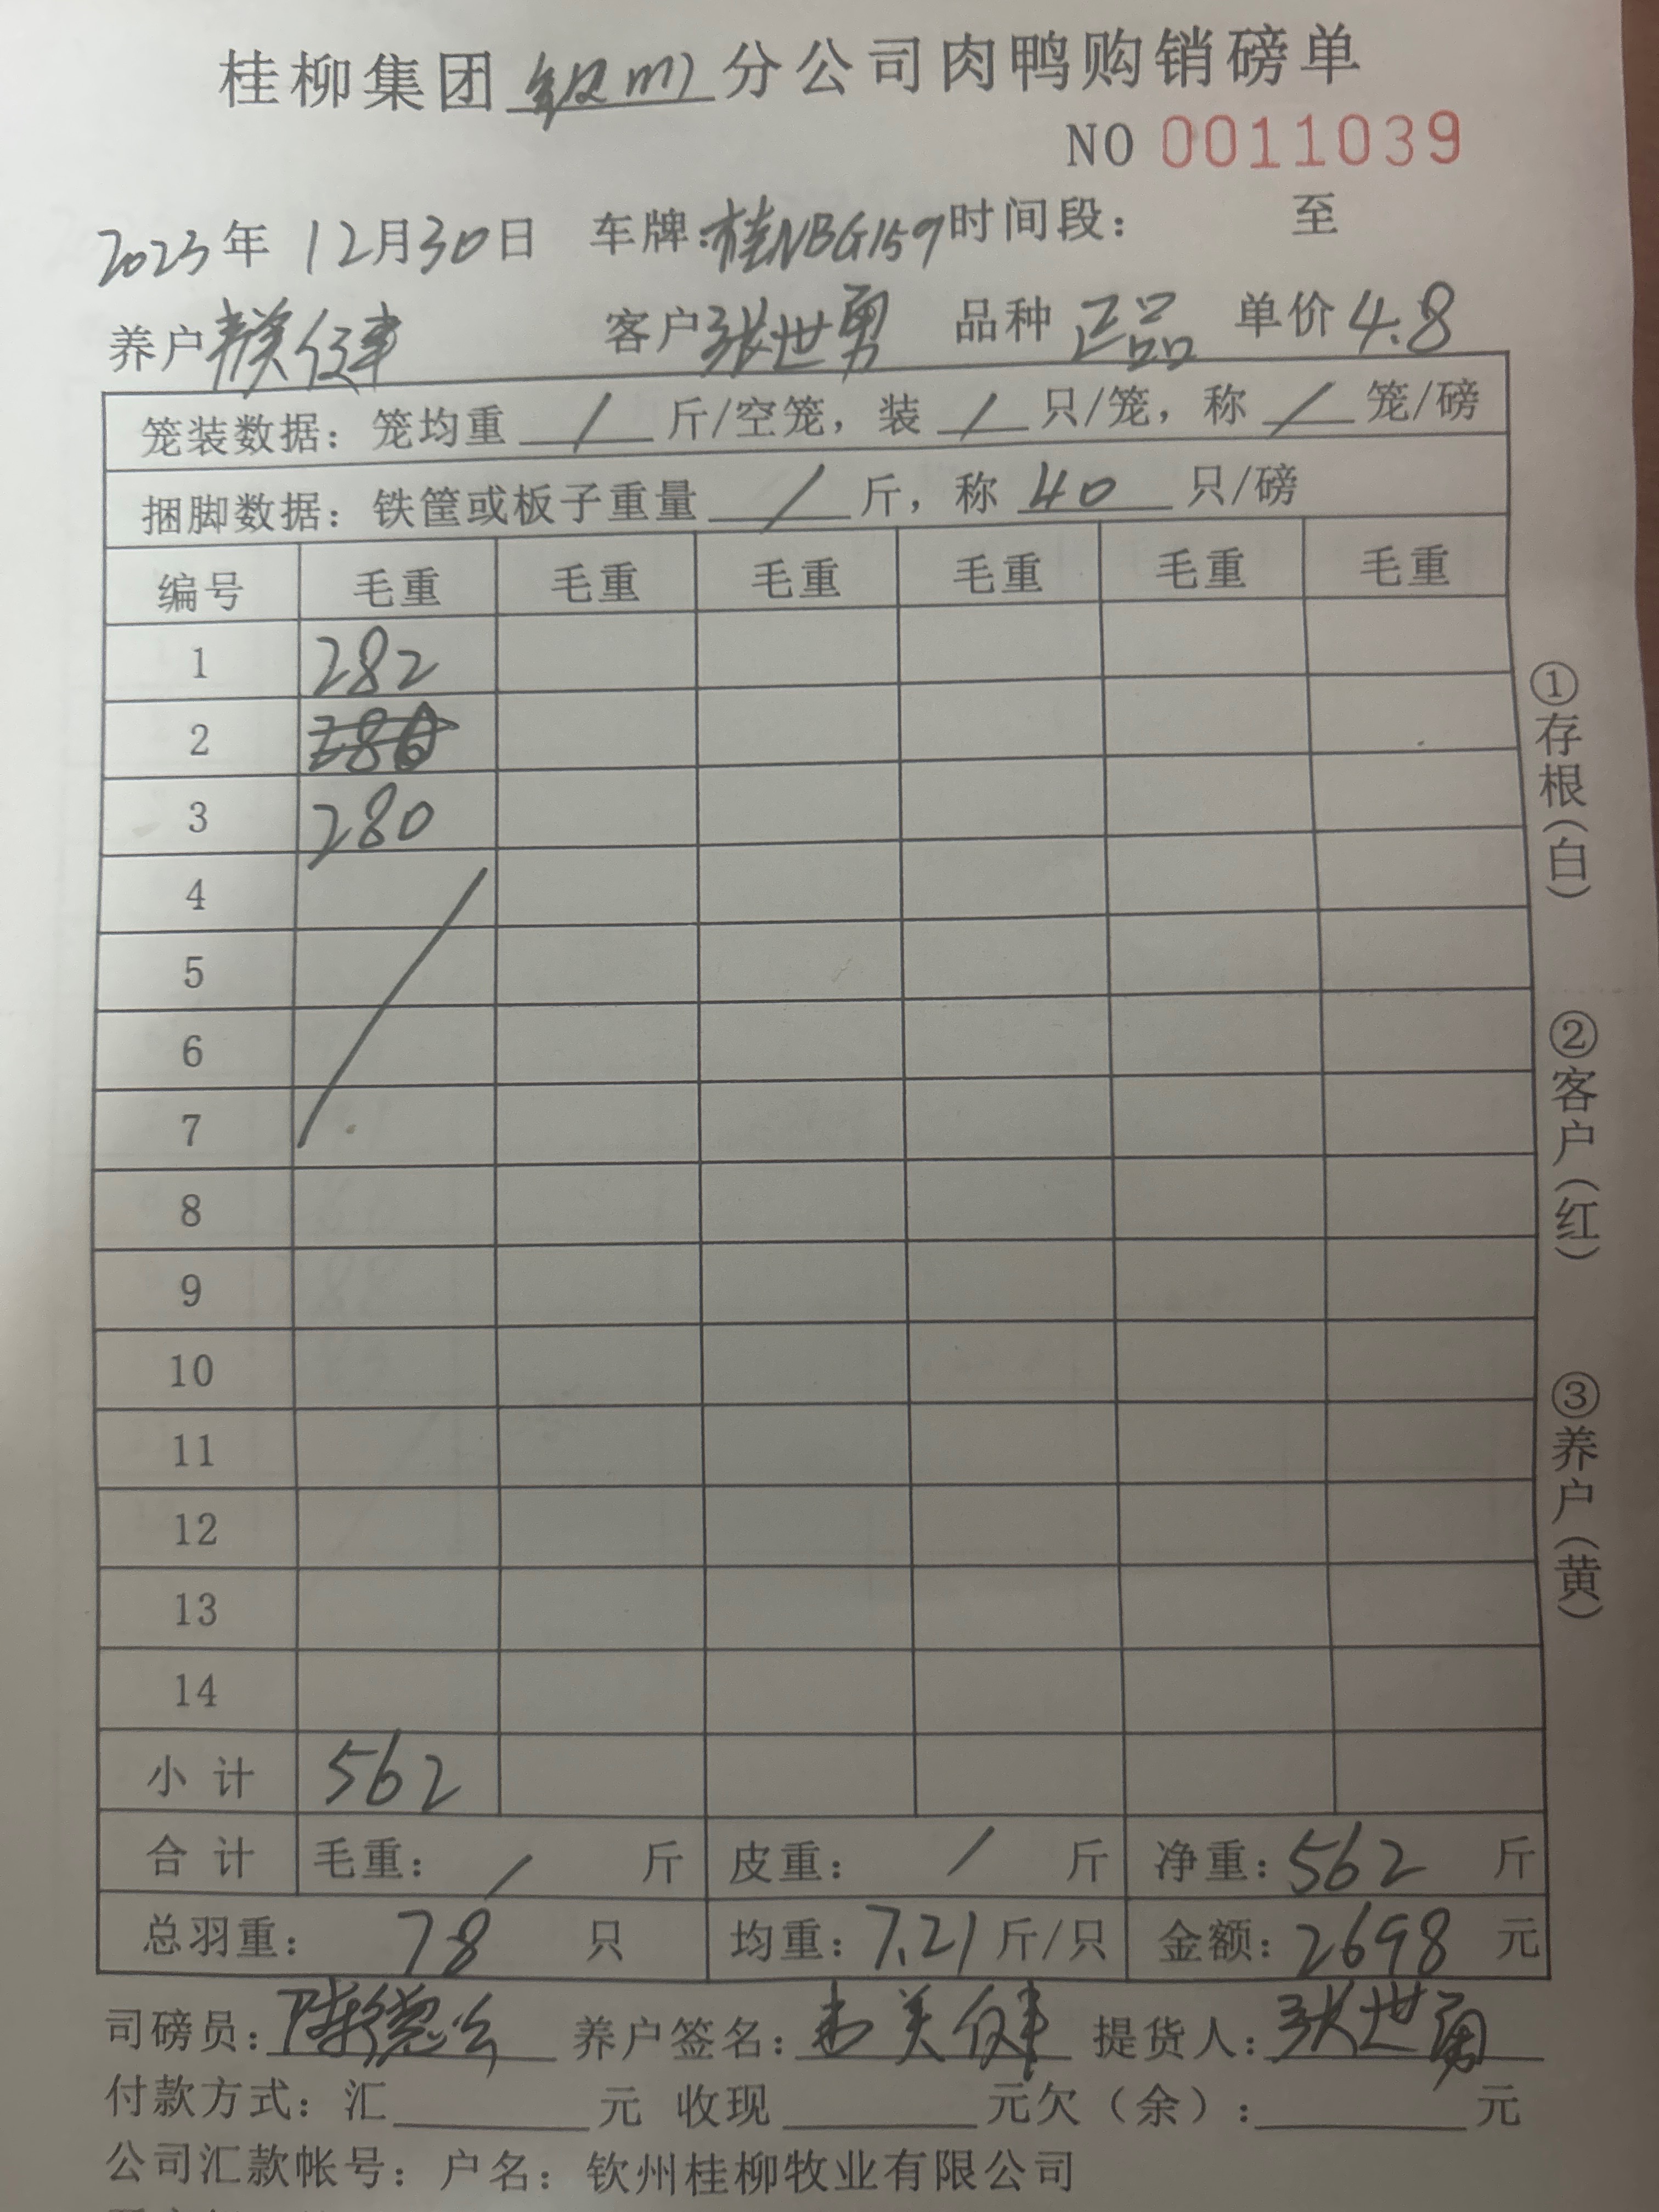 桂柳集团钦州分公司肉鸭购销磅单
NO 0011039
2023年 12月30日 车牌:桂NBG159时间段： 至
养户 客户张世勇 品种 正品 单价4.8
笼装数据：笼均重 / 斤/空笼，装 / 只/笼，称 / 笼/磅
捆脚数据：铁筐或板子重量 / 斤，称 40 只/磅
编号 毛重 毛重 毛重 毛重 毛重 毛重
1 282
2
3 280
4
5
6
7
8
9
10
11
12
13
14
小 计 562
合 计 毛重： / 斤 皮重： / 斤 净重：562 斤
总羽重： 78 只 均重：7.21斤/只 金额：2698 元
司磅员：陈德 养户签名： 提货人：张世勇
付款方式：汇 元 收现 元欠（余）： 元
公司汇款帐号：户名：钦州桂柳牧业有限公司
①存根(白)
②客户(红)
③养户(黄)